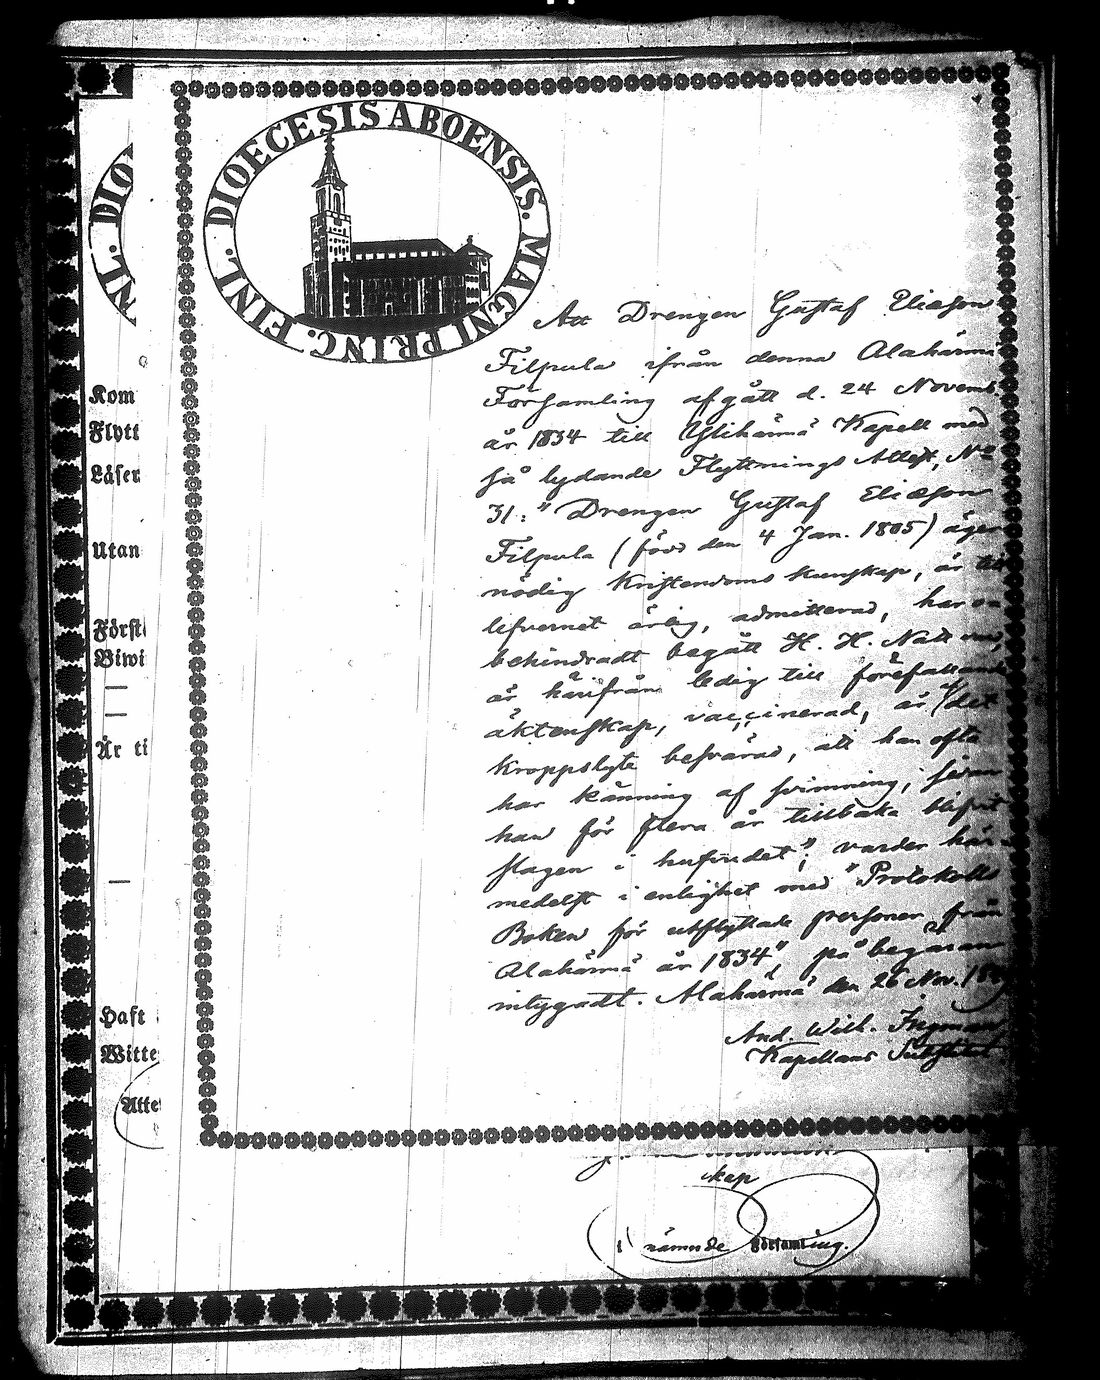 DIOECESIS ABOENSIS. MAGNI PRINC. FINL.
DIO
NL.
Att Drengen Gustaf Eliæson
Filpula ifrån denna Alahärmä
Församling afgått d. 24 Novemb.
år 1834 till Ylihärmä Kapell med
så lydande Flyttnings Attest, No
31: "Drengen Gustaf Eliæson
Filpula (född den 4 Jan. 1805) äger
nödig Kristendoms kunskap, är till
lefvernet ärlig, admitterad, har o-
behindradt begått H. H. Nattvard,
är härifrån ledig till förefallande
äktenskap, vaccinerad, är af det
kroppslyte besvärad, att han ofta
har känning af svimning, sedan
han för flera år tillbaka blifvit
slagen i hufvudet"; varder här-
medelst i enlighet med "Protokolls
Boken för utflyttade personer från
Alahärmä år 1834" på begäran
intygadt. Alahärmä den 26 Nov.
And. Wilh. Ingman
Kapellans Substitut.
Kom
Flytt
Läser
Utan
Först
Biwi
—
—
Är ti
—
Haft
Witte
Atte
skap
i nämnde Församling.